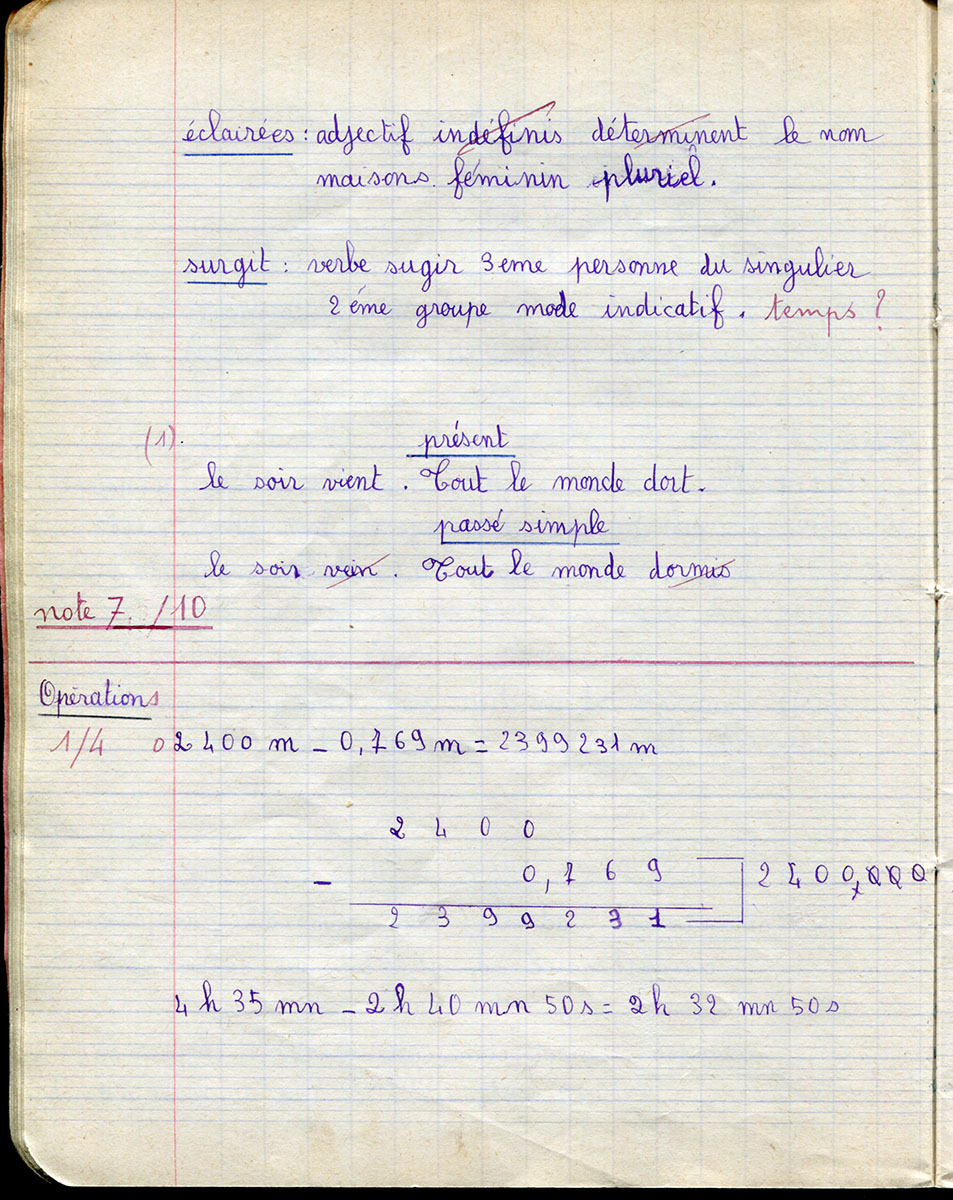 éclairées : adjectif indéfinis déterminent le nom
maisons. féminin pluriel.
surgit : verbe sugir 3eme personne du singulier
2 éme groupe mode indicatif. temps ?
(1).
présent
le soir vient. Tout le monde dort.
passé simple
le soir vein. Tout le monde dormis
note 7. /10
Opérations
1/4 0 2 400 m - 0,769 m = 2399231 m
2 4 0 0
- 0,7 6 9 2 4 0 0,000
2 3 9 9 2 3 1
4 h 35 mn - 2 h 40 mn 50 s = 2 h 32 mn 50 s